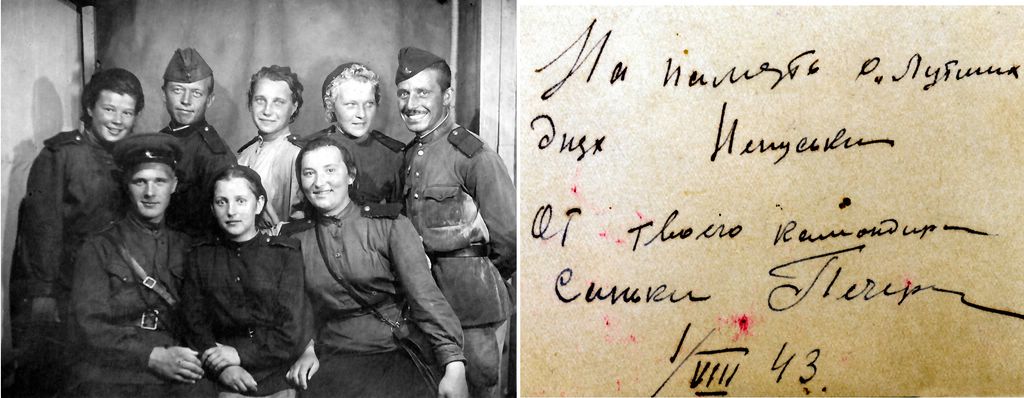 На память о лутших
днях Непуськи
От твоего командира
Саньки Печер
1/VIII 43.